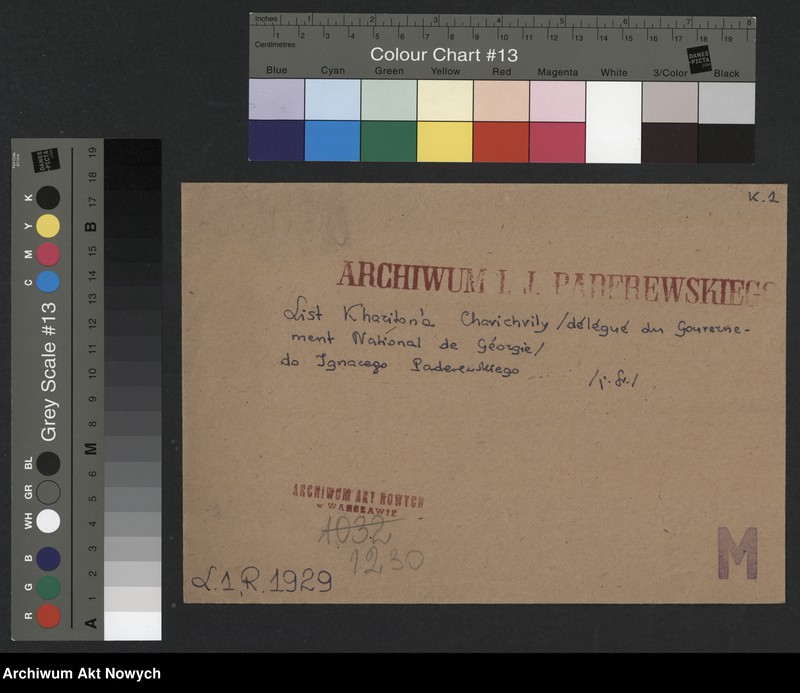 Inches 1 2 3 4 5 6 7 8
Centimetres 1 2 3 4 5 6 7 8 9 10 11 12 13 14 15 16 17 18 19
Colour Chart #13
DANES-PICTA
Blue Cyan Green Yellow Red Magenta White 3/Color Black
Grey Scale #13
DANES-PICTA
R G B WH GR BL C M Y K
A 1 2 3 4 5 6 M 8 9 10 11 12 13 14 15 B 17 18 19
K. 1
ARCHIWUM I. J. PADEREWSKIEGO
List Khariton'a Chavichvily /délégué du Gouverne-
ment National de Géorgie/
do Ignacego Paderewskiego /j. fr./
ARCHIWUM AKT NOWYCH
w WARSZAWIE
1032
1230
L. 1, R. 1929
M
Archiwum Akt Nowych